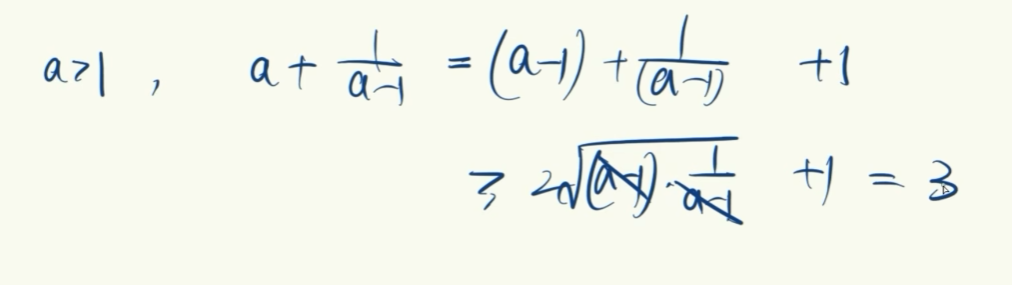 a>1 , a + 1/(a-1) = (a-1) + 1/(a-1) +1
≥ 2√((a-1)·1/(a-1)) +1 = 3